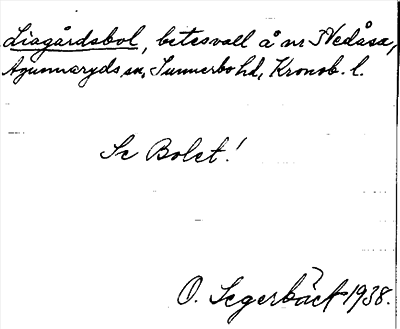 Liagårdsbol, betesvall å nr 3 Vedåsa,
Agunnaryds sn, Sunnerbo hd, Kronob. l.
Se Bolet!
O. Segerbäck 1938.